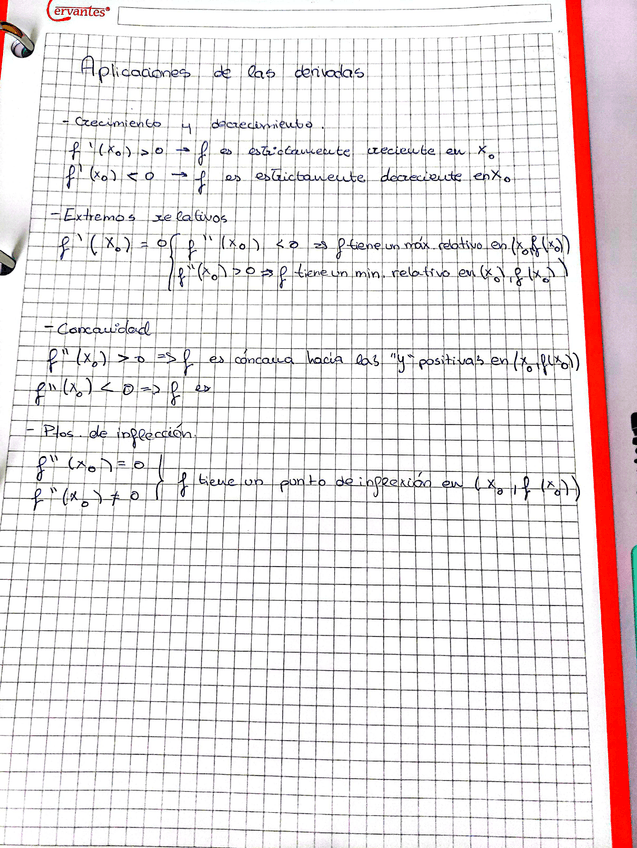 Cervantes®
Aplicaciones de las derivadas
- Crecimiento y decrecimiento.
f'(x₀) > 0 → f es estrictamente creciente en x₀
f'(x₀) < 0 → f es estrictamente decreciente en x₀
- Extremos relativos
f'(x₀) = 0 { f''(x₀) < 0 ⇒ f tiene un máx. relativo en (x₀, f(x₀))
f''(x₀) > 0 ⇒ f tiene un min. relativo en (x₀), f(x₀))
- Concavidad
f''(x₀) > 0 => f es cóncava hacia las "y" positivas en (x₀, f(x₀))
f''(x₀) < 0 => f es
- Ptos. de inflección.
f''(x₀) = 0
f''(x₀) ≠ 0 } f tiene un punto de inflexión en (x₀, f(x₀))